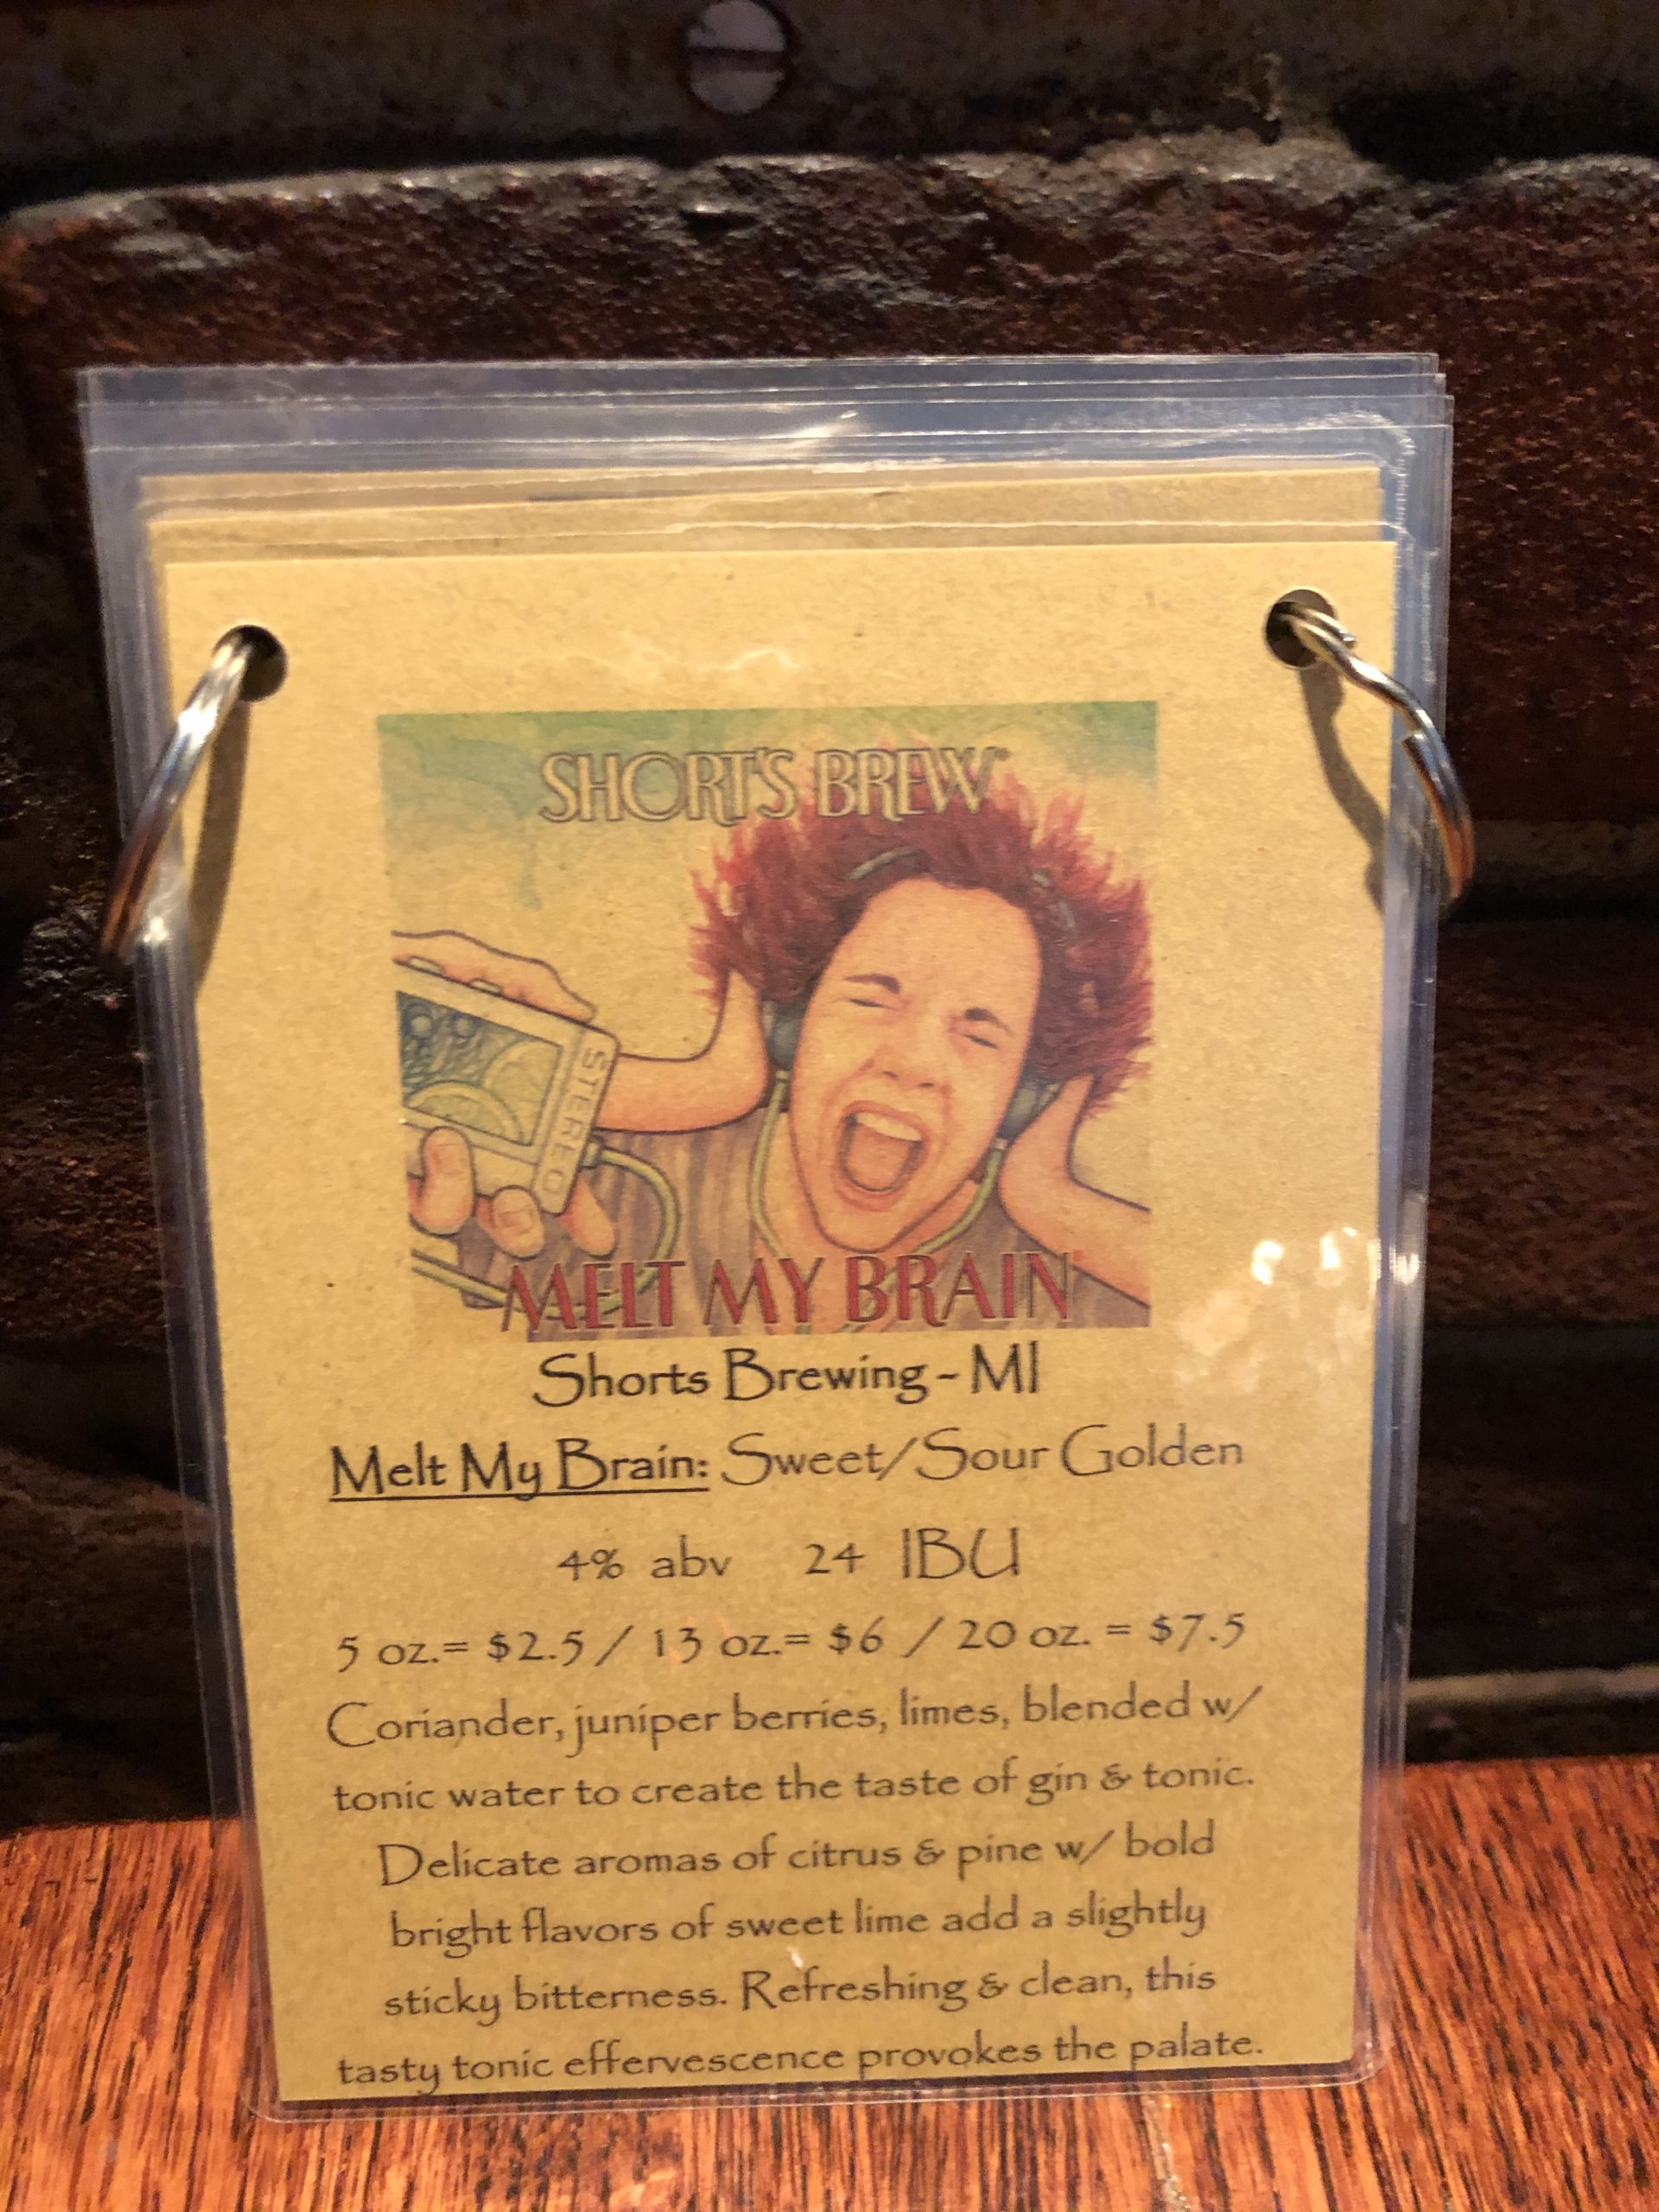 SHORT'S BREW®
STEREO
MELT MY BRAIN
Shorts Brewing - MI
Melt My Brain: Sweet/Sour Golden
4% abv 24 IBU
5 oz.= $2.5 / 13 oz.= $6 / 20 oz. = $7.5
Coriander, juniper berries, limes, blended w/
tonic water to create the taste of gin & tonic.
Delicate aromas of citrus & pine w/ bold
bright flavors of sweet lime add a slightly
sticky bitterness. Refreshing & clean, this
tasty tonic effervescence provokes the palate.